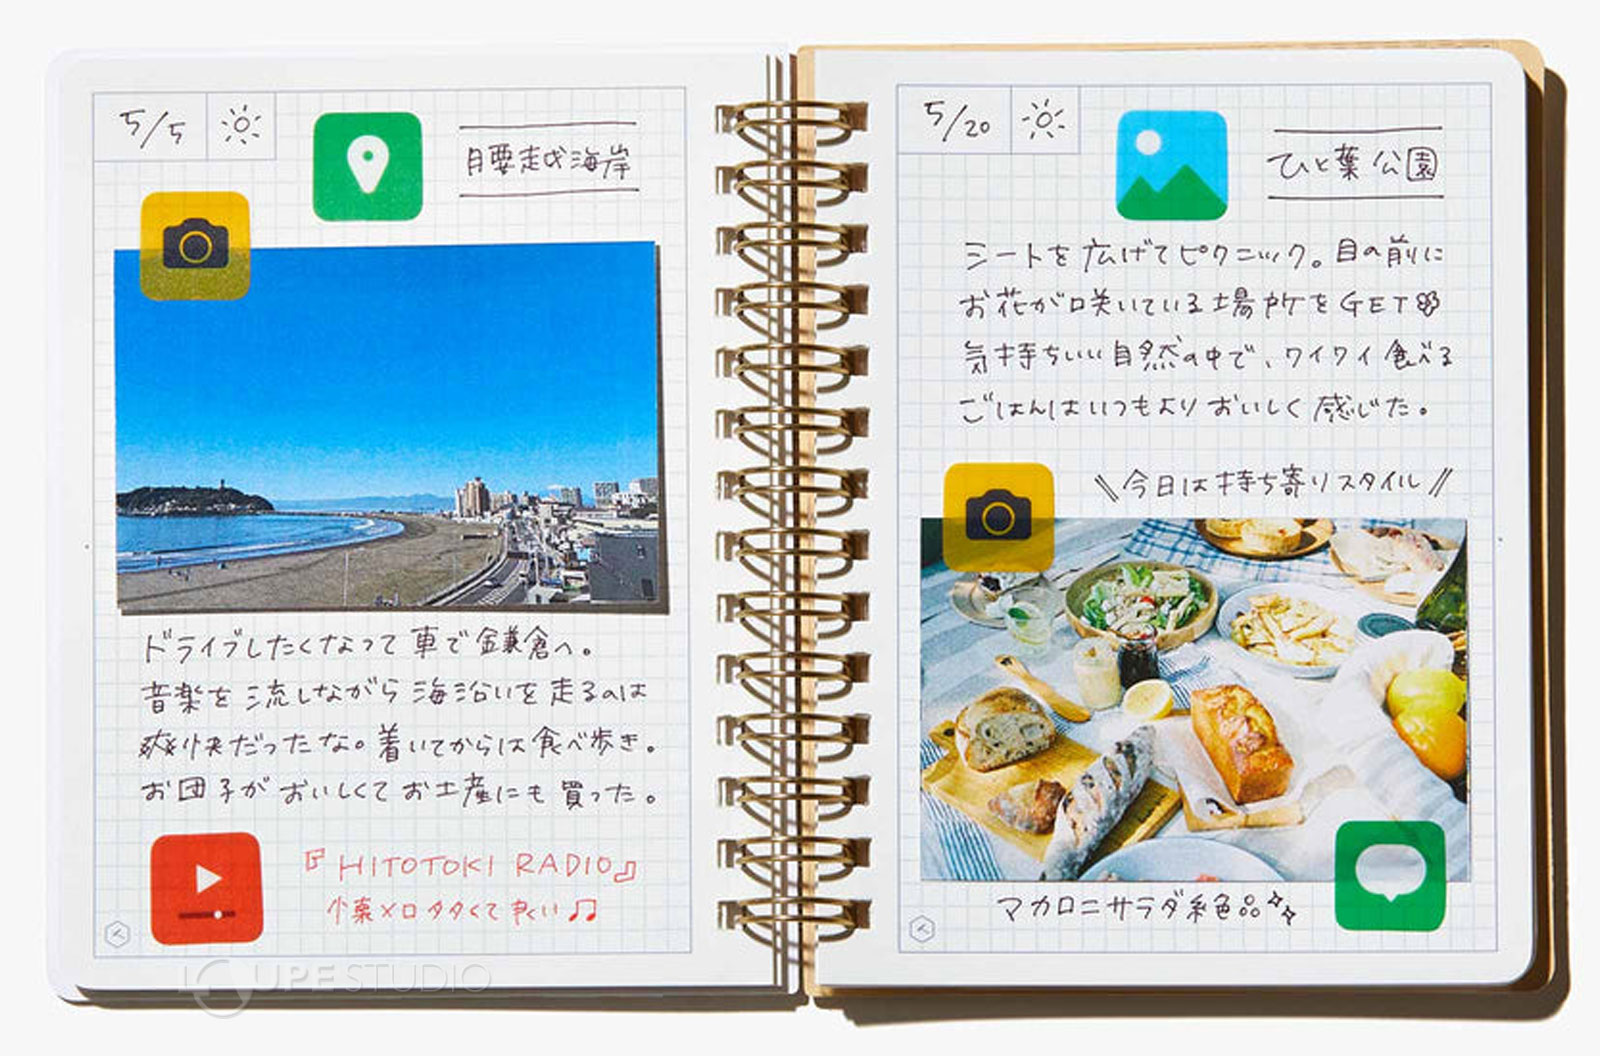 5/5
腰越海岸
ドライブしたくなって車で鎌倉へ。
音楽を流しながら海沿いを走るのは
爽快だったな。着いてからは食べ歩き。
お団子がおいしくてお土産にも買った。
『HITOTOKI RADIO』
懐メロ多くて良い♫
LOUPE STUDIO
5/20
ひと葉公園
シートを広げてピクニック。目の前に
お花が咲いている場所をGET
気持ちいい自然の中で、ワイワイ食べる
ごはんはいつもよりおいしく感じた。
\\今日は持ち寄りスタイル//
マカロニサラダ絶品